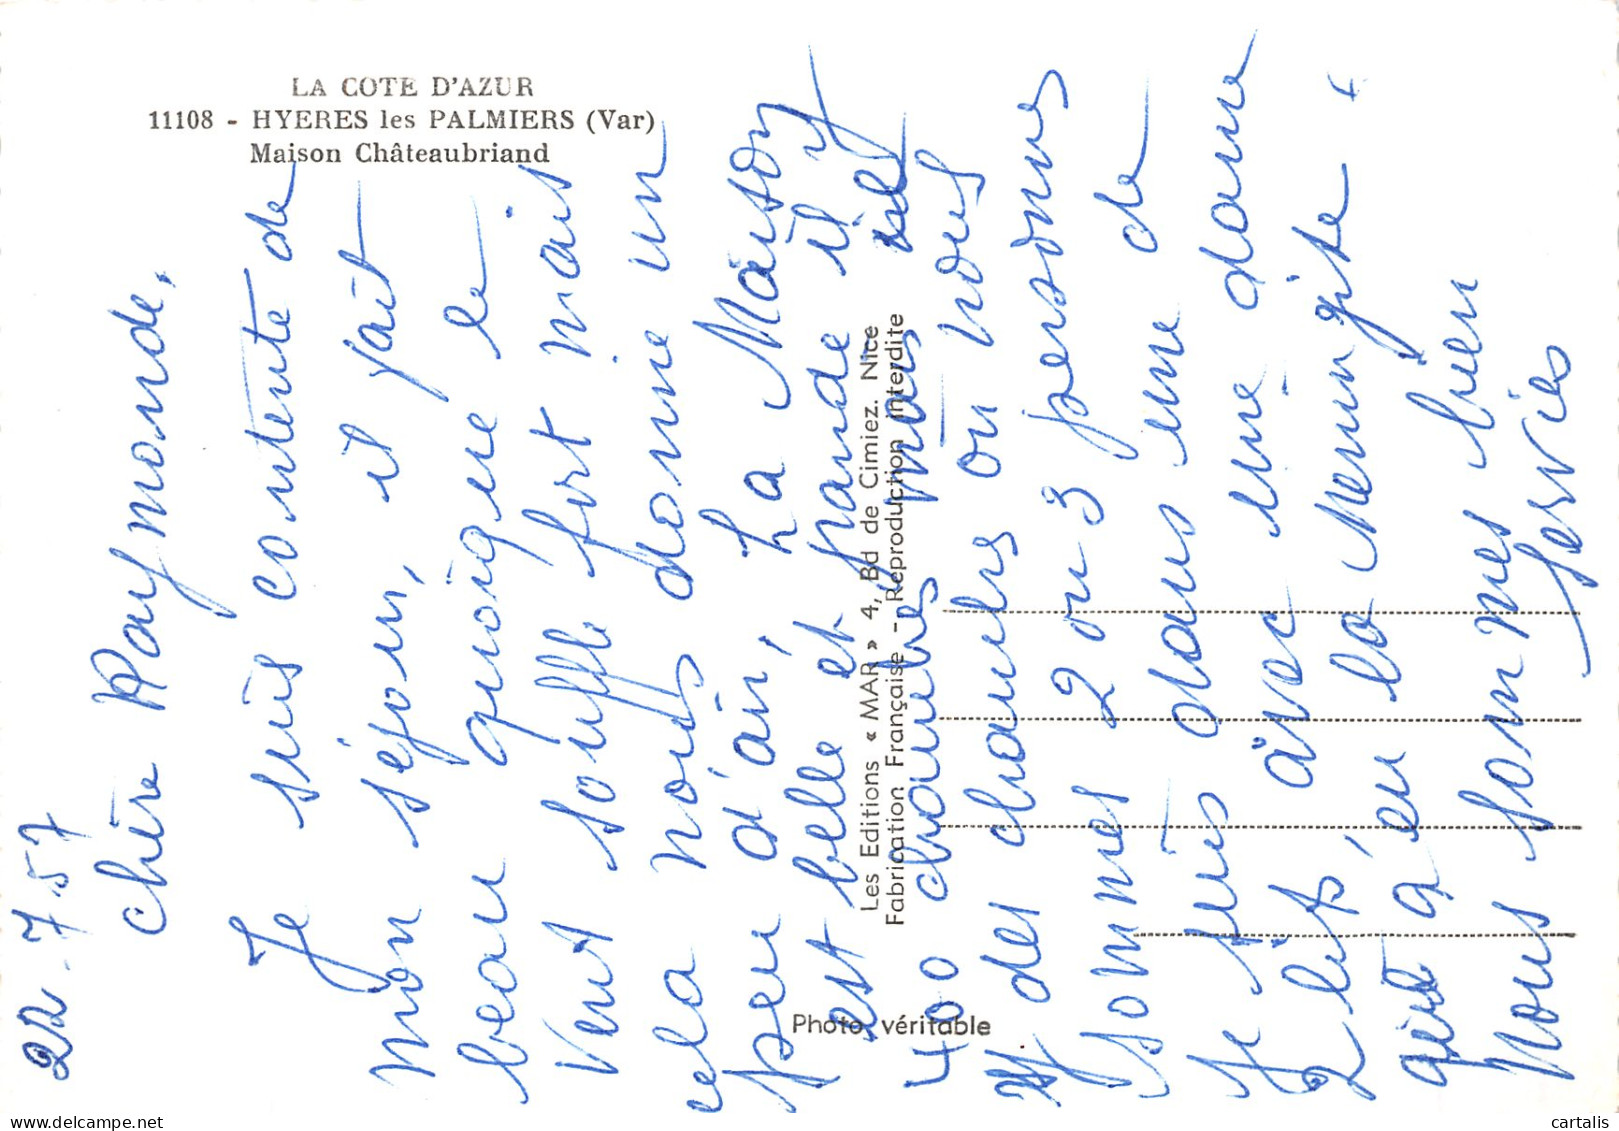 LA COTE D'AZUR
11108 - HYERES les PALMIERS (Var)
Maison Châteaubriand
Les Editions « MAR » 4, Bd de Cimiez. Nice
Fabrication Française - Reproduction interdite
Photo véritable
22-7 57
Chère Raymonde,
Je suis contente de
mon séjour, il fait
beau quoique le
vent souffle fort mais
cela nous donne un
peu d'air, La Maison
est belle et grande il y
400 chambres mais il y
des chambres ou nous
sommes 2 ou 3 personnes
Je suis dans une de
2 lits, avec une dame
qui q'eu la Meningite
Nous sommes bien
servies
cartalis